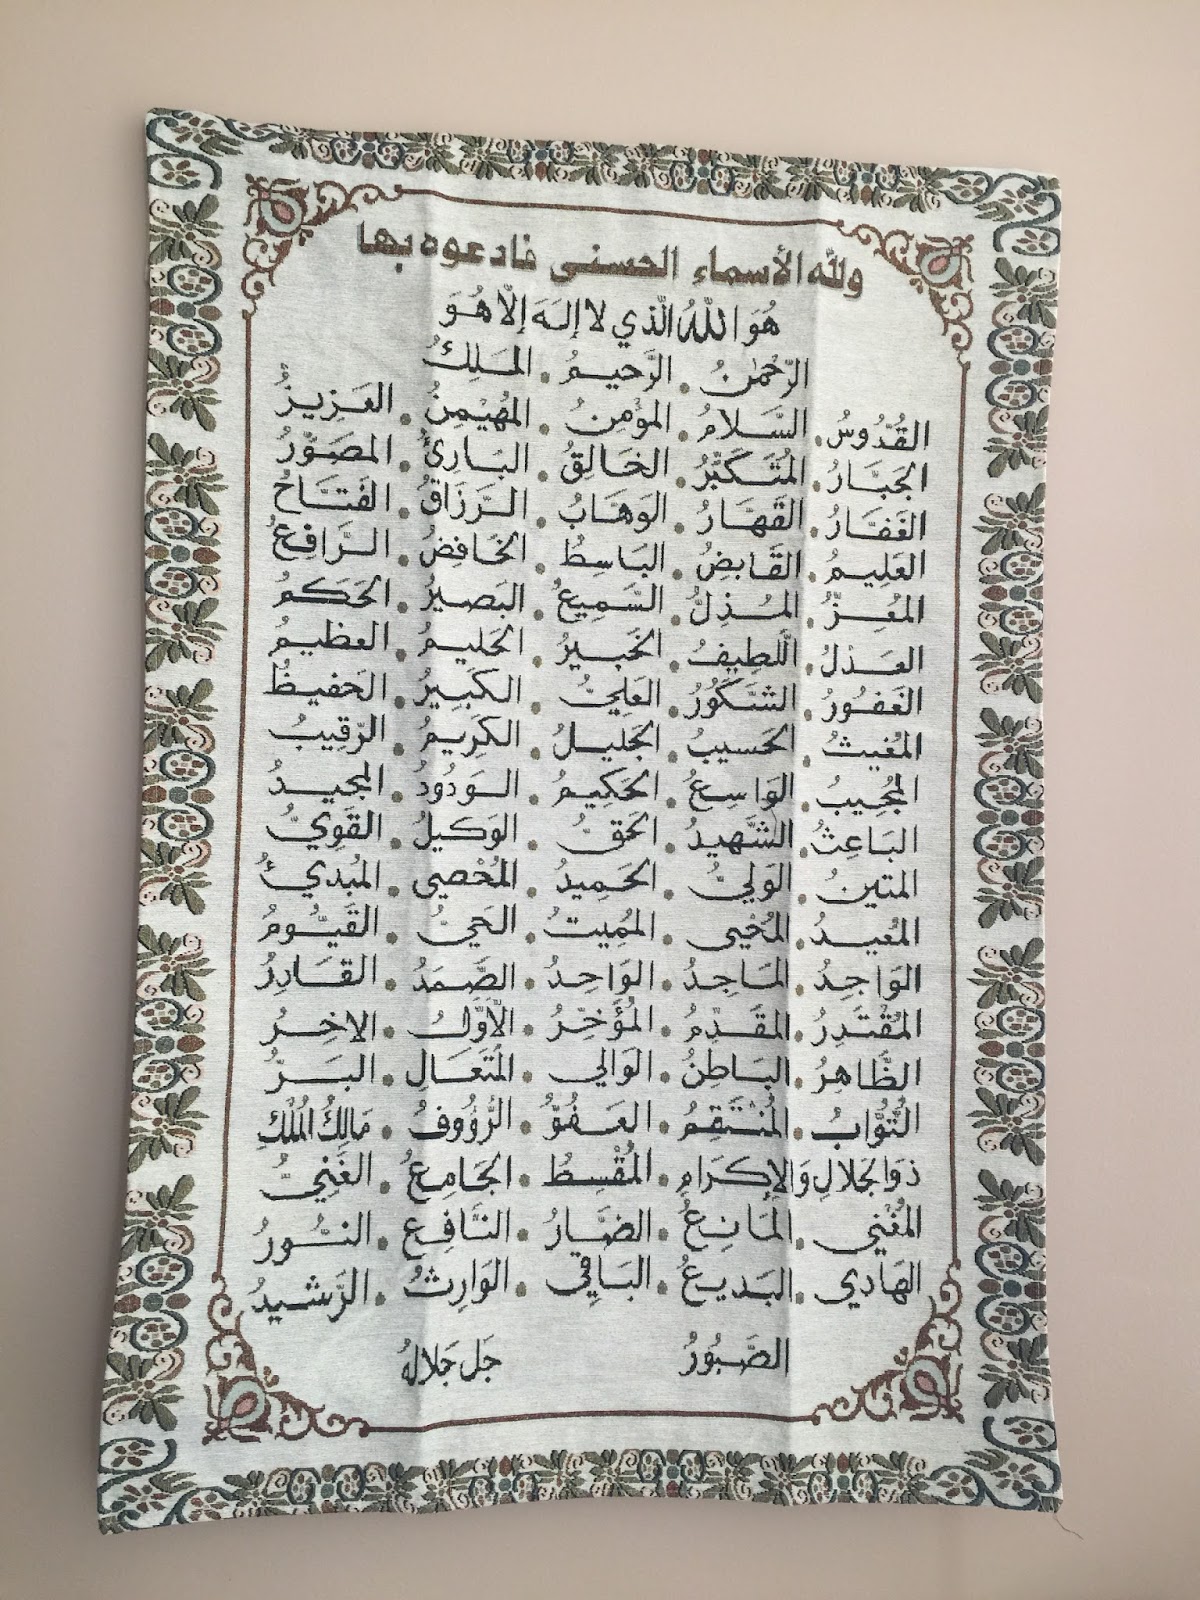 ولله الأسماء الحسنى فادعوه بها
هُوَ اللهُ الَّذي لا إلـه إلّا هُوَ
الرَّحْمٰنُ . الرَّحيمُ . المَلِكُ
القُدُّوسُ . السَّلامُ . المؤمِنُ . المُهَيْمِنُ . العَزيزُ
الجَبَّارُ . المُتَكَبِّرُ . الخَالِقُ . البَارِئُ . المصَوِّرُ
الغَفَّارُ . القَهَّارُ . الوَهَّابُ . الرَّزَاقُ . الفَتَّاحُ
العَلِيمُ . القَابِضُ . البَاسِطُ . الخَافِضُ . الرَّافِعُ
المُعِزُّ . المُذِلُّ . السَّمِيعُ . البَصيرُ . الحَكَمُ
العَدْلُ . اللَّطِيفُ . الخَبيرُ . الحَليمُ . العظيمُ
الغَفُورُ . الشَّكُورُ . العَلِيُّ . الكَبِيرُ . الحَفيظُ
المُغيثُ . الحَسيبُ . الجَليلُ . الكَرِيمُ . الرَّقِيبُ
المُجِيبُ . الوَاسِعُ . الحَكِيمُ . الوَدُودُ . المجيدُ
البَاعِثُ . الشَّهيدُ . الحَقُّ . الوَكيلُ . القَوِيُّ
المتينُ . الوَلِيُّ . الحَمِيدُ . المُحْصي . المُبْديُ
المُعيدُ . المُحْيي . المُمِيتُ . الحَيُّ . القَيُّومُ
الوَاجِدُ . المَاجِدُ . الوَاحِدُ . الصَّمَدُ . القَادِرُ
المُقْتَدِرُ . المقَدِّمُ . المُؤَخِّرُ . الأوَّلُ . الاخِرُ
الظَّاهِرُ . البَاطِنُ . الوَالي . المُتَعَالِ . البَرُّ
التَّوَّابُ . المُنْتَقِمُ . العَفُوُّ . الرَّؤُوفُ . مَالِكُ المُلْكِ
ذوَالجَلالِ وَالإكرَامِ . المُقْسِطُ . الجَامِعُ . الغَنِيُّ
المُغْني . المَانِعُ . الضَّارُ . النَّافِع . النُّورُ
الهَادي . البَديعُ . البَاقي . الوَارِثُ . الرَّشيدُ
الصَّبُورُ جَل جَلالهُ